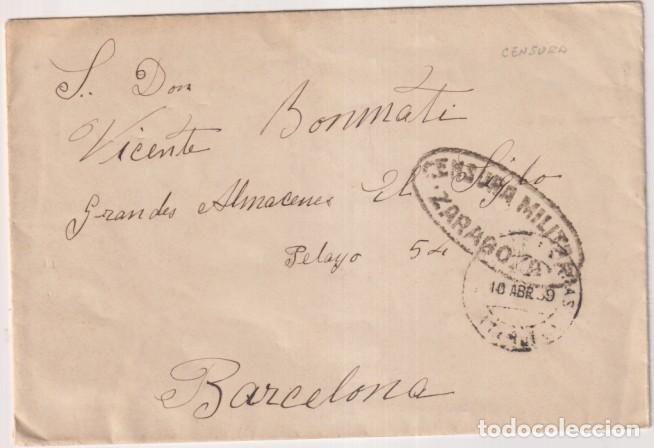 CENSURA
S. Don
Vicente Bonmati
Grandes Almacenes El Siglo
Pelayo 54
Barcelona
CENSURA MILITAR
ZARAGOZA
10 ABR 39
todocoleccion.net